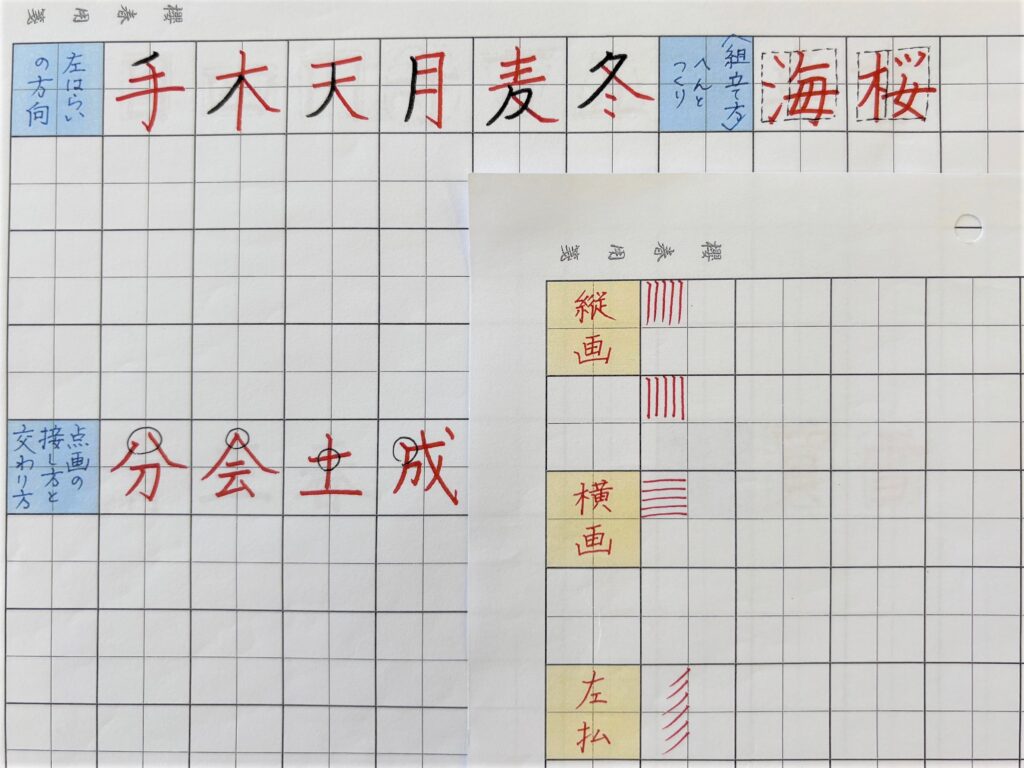 櫻春用箋
左はらい
の方向
手 木 天 月 麦 冬
〈組立て方〉
へんと
つくり
海 桜
点画の
接し方と
交わり方
分 会 土 成
櫻春用箋
縦画
横画
左払